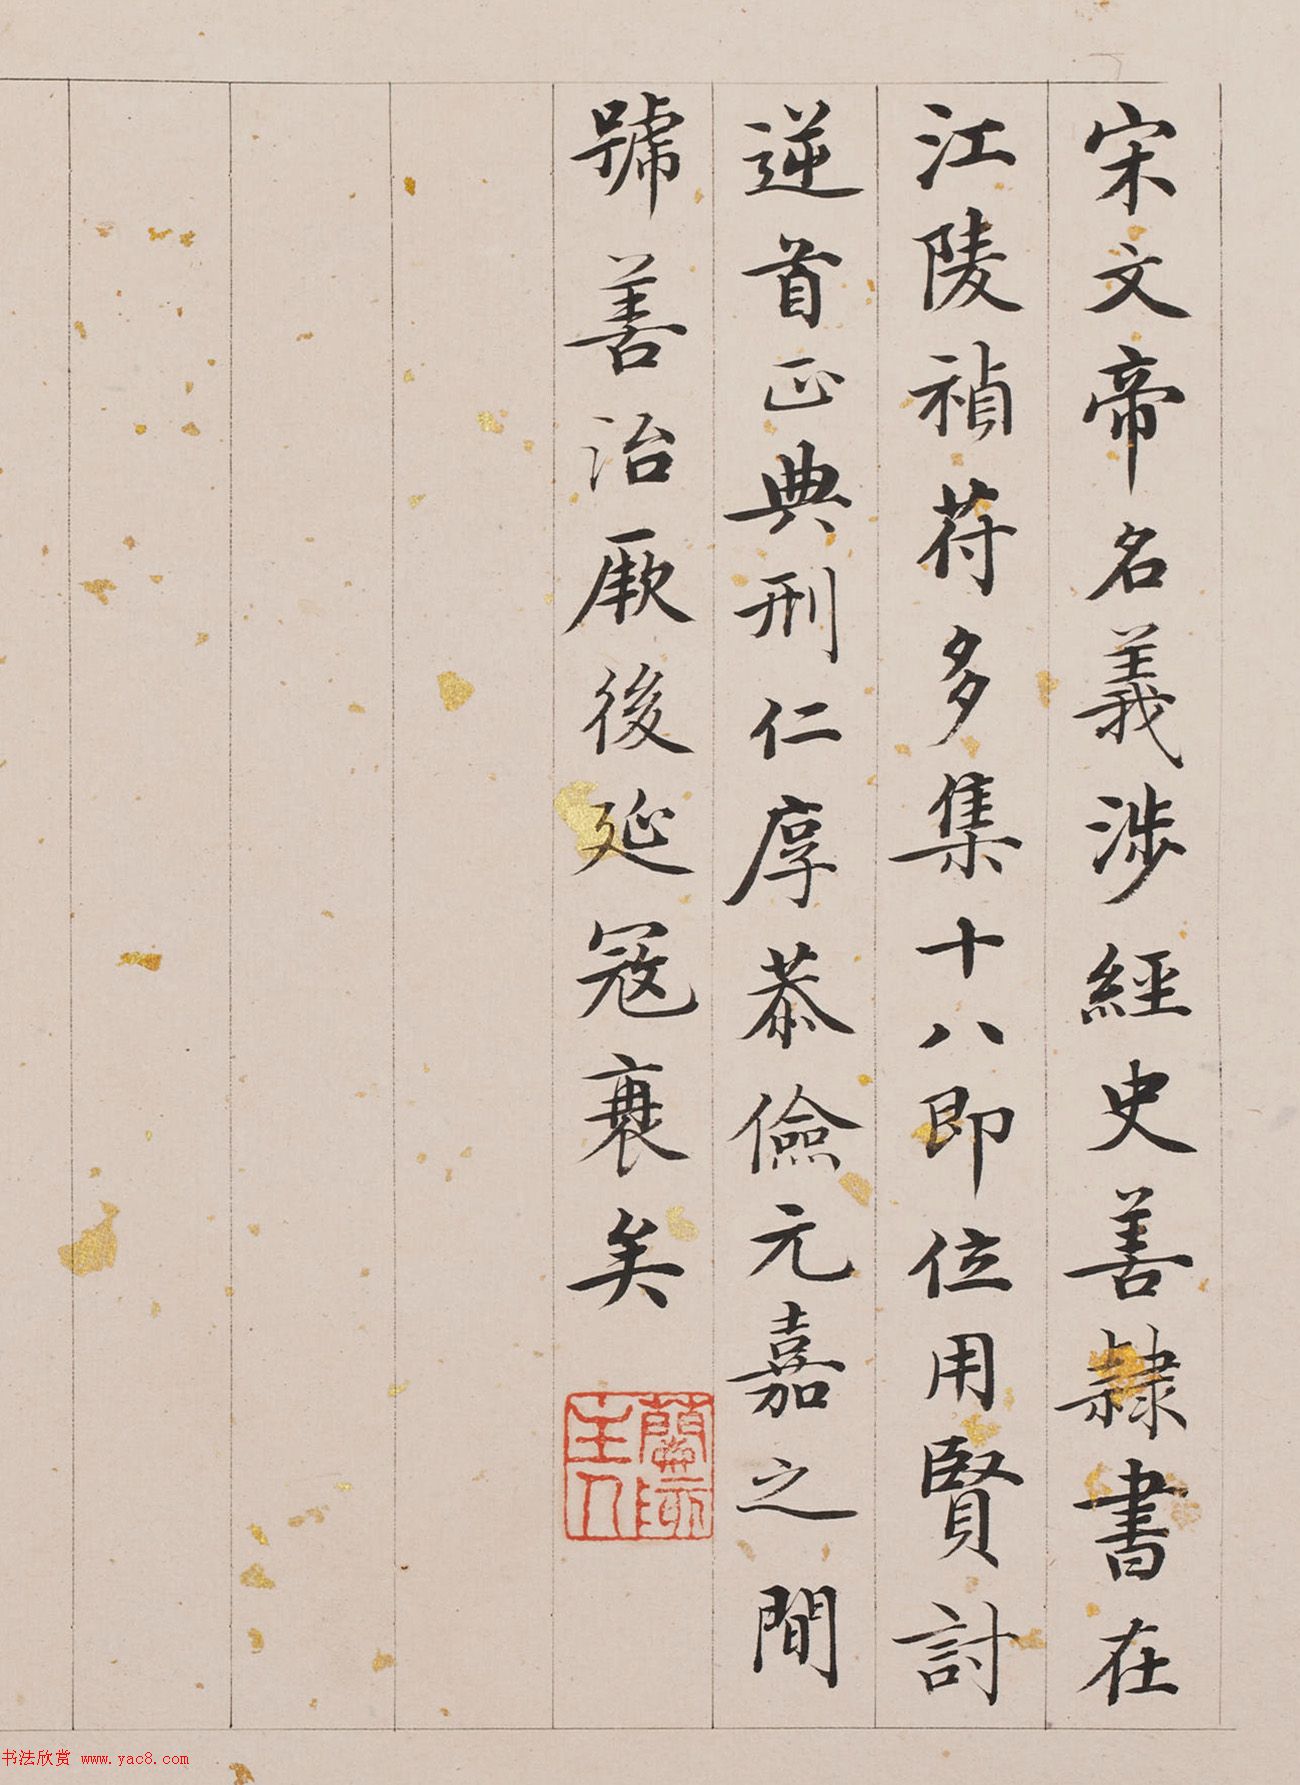 宋文帝名義涉經史善隸書在
江陵禎符多集十八即位用賢討
逆首正典刑仁厚恭儉元嘉之間
號善治厥後延寇衰矣
主人
书法欣赏 www.yac8.com